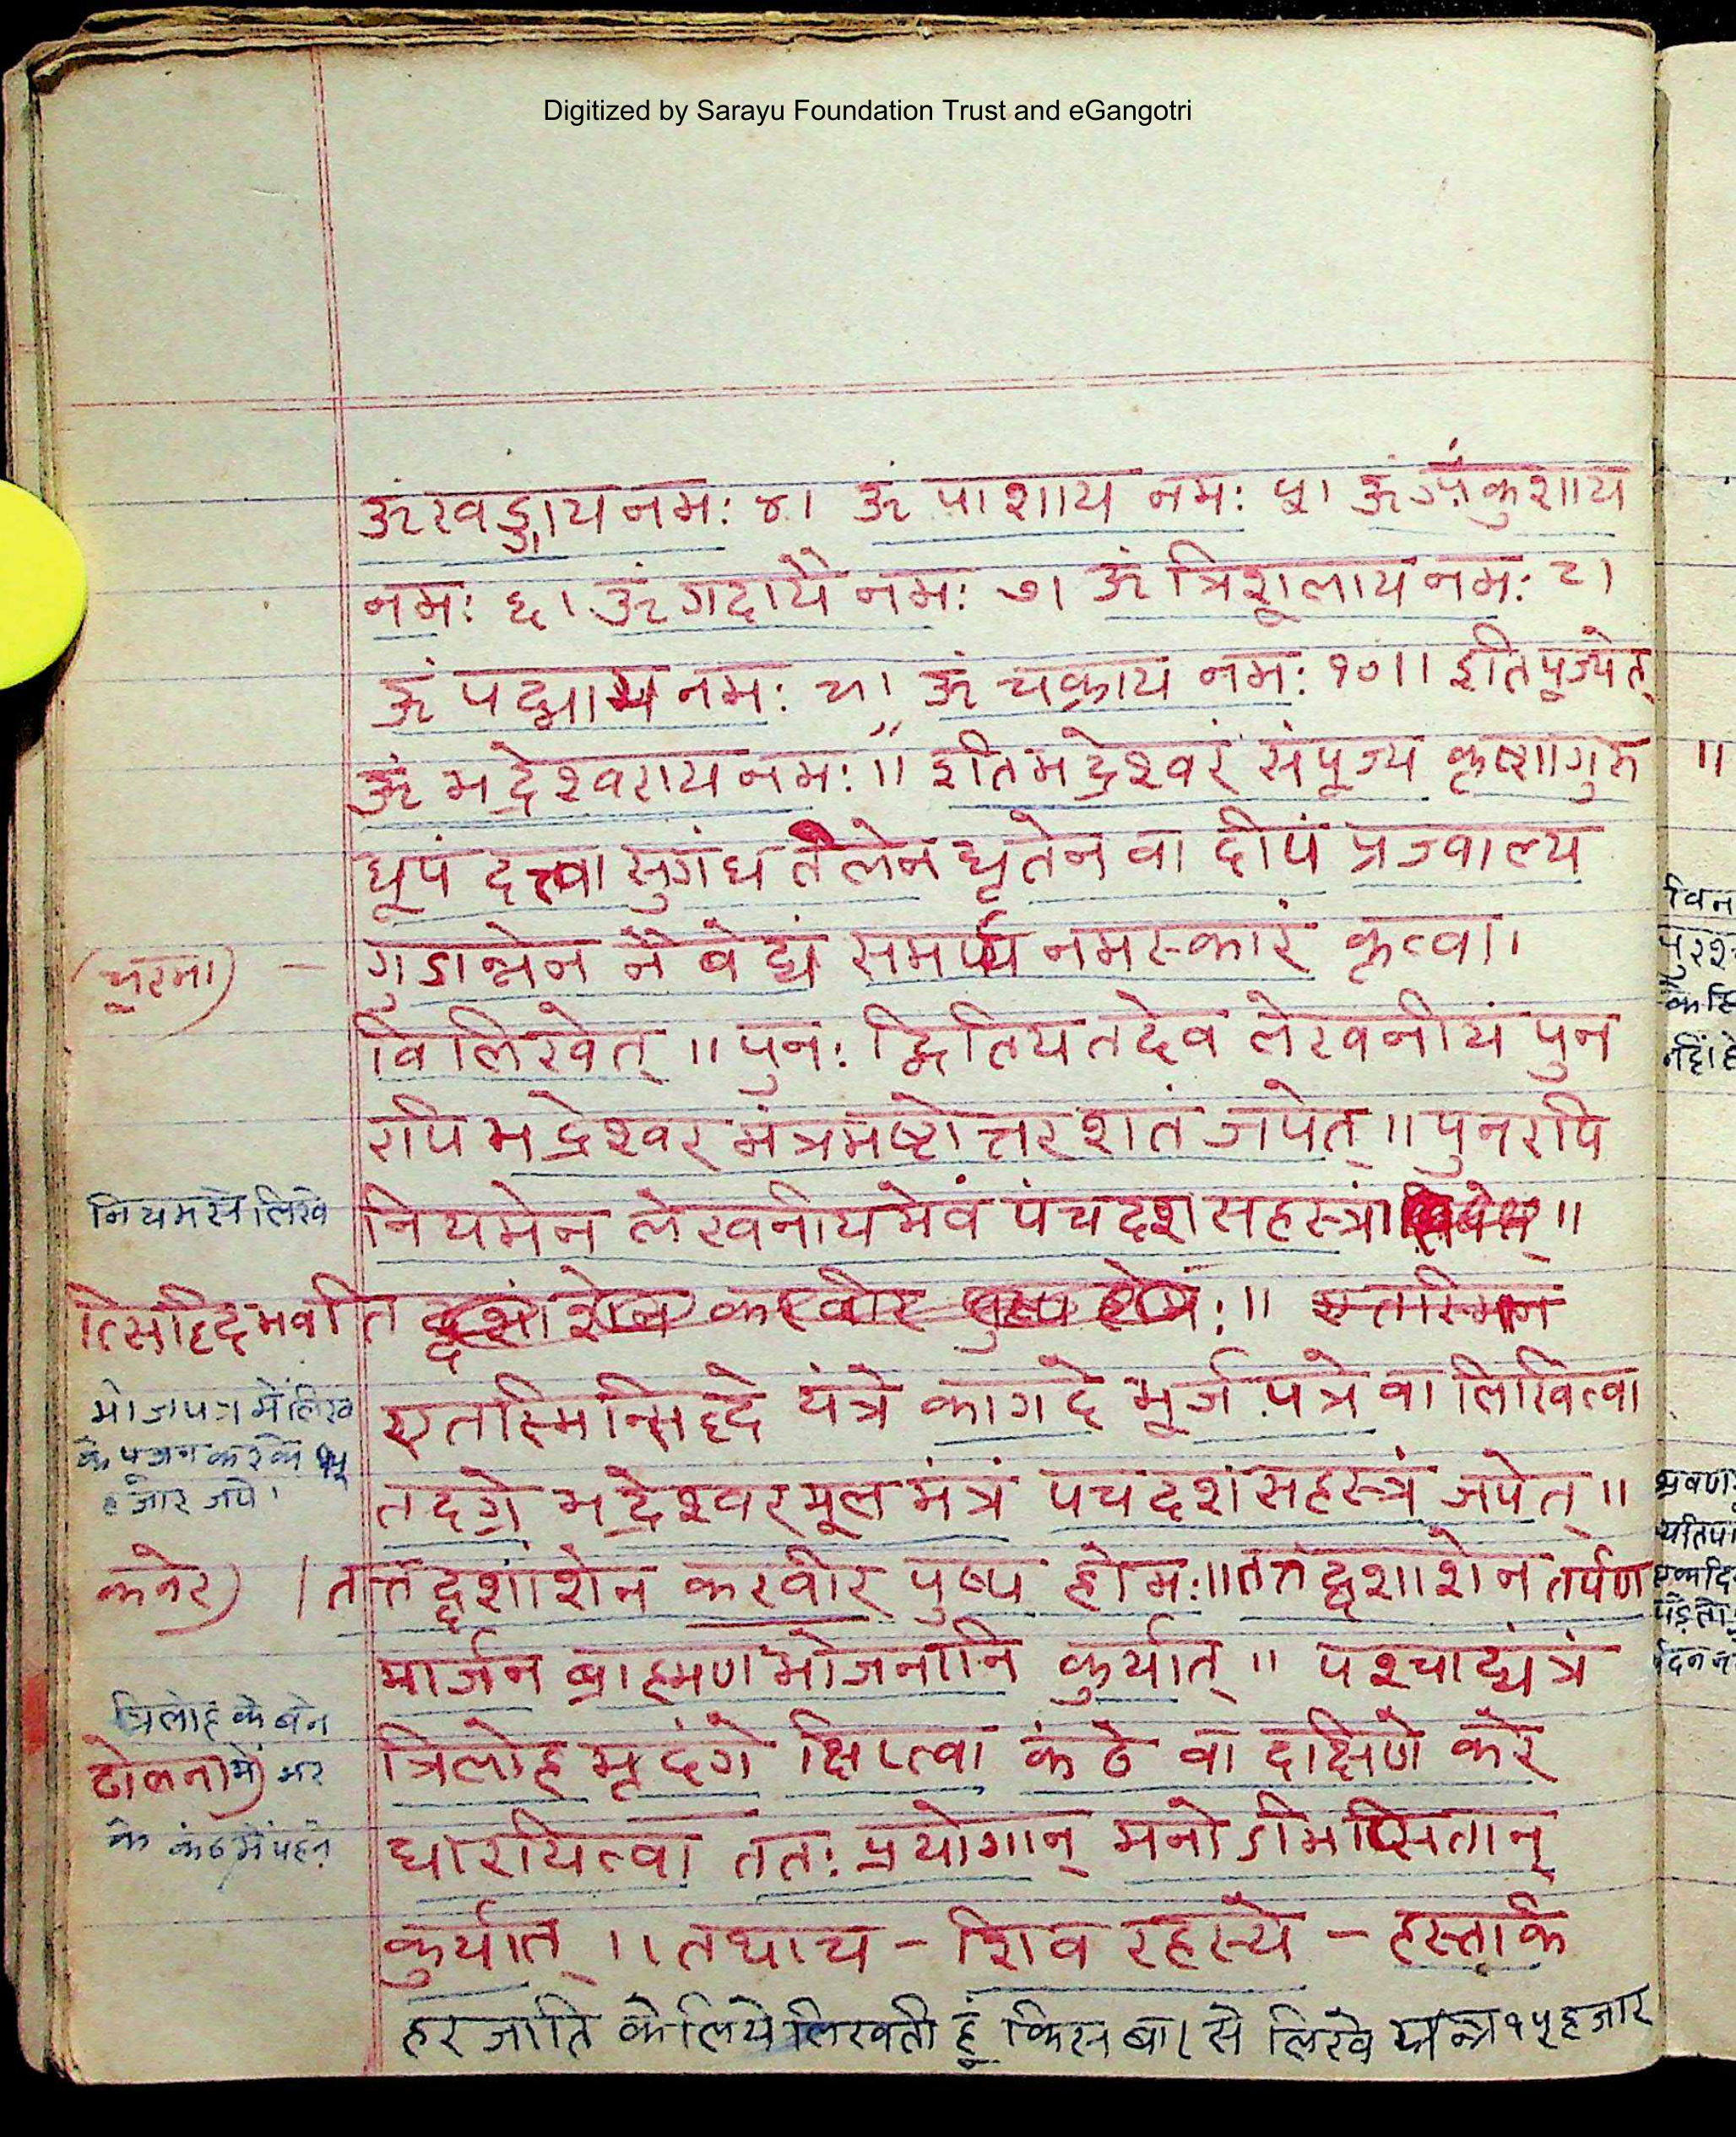 Digitized by Sarayu Foundation Trust and eGangotri
ॐ खड्गाय नमः ४। ॐ पाशाय नमः ५। ॐ अंकुशाय
नमः ६। ॐ गदायै नमः ७। ॐ त्रिशूलाय नमः ८।
ॐ पद्माय नमः ९। ॐ चक्राय नमः १०।। इति पूज्येत्
ॐ भद्रेश्वराय नमः।। इति भद्रेश्वरं संपूज्य कृष्णागुरु ॥
धूपं दत्त्वा सुगंध तैलेन घृतेन वा दीपं प्रज्वाल्य
(चूरमा) – गुडान्नेन नैवेद्यं समर्प्य नमस्कारं कृत्वा।
विलिखेत् ।। पुनः द्वितिय तदेव लेखनीयं पुन
रपि भद्रेश्वर मंत्रमष्टोत्तर शतं जपेत् ।। पुनरपि
नियम से लिखे
नियमेन लेखनीयमेवं पंचदश सहस्त्रं ।।
त्सिद्धिर्दभवति करवीर
एतस्मिन्सिद्धे यंत्रे कागदे भूर्ज पत्रे वा लिखित्वा
भोजपत्र में लिख
के पूजन करके १५
हजार जपे।
तदग्रे भद्रेश्वर मूल मंत्रं पचदशं सहस्त्रं जपेत् ।।
कनेर) । तत्तद्दशांशेन करवीर पुष्प होमः।। तत्तद्दशाशेन तर्पण
मार्जन ब्राह्मण भोजनानि कुर्यात् ।। पश्चाद्यंत्रं
त्रिलोह के बने
ढोलना) में भर
के कंठ में पहने
त्रिलोह मृदंगे क्षिप्त्वा कंठे वा दक्षिणे करे
धारयित्वा ततः प्रयोगान् मनोऽभिप्सितान्
कुर्यात् ।। तथाच – शिव रहस्ये – हस्तार्क
हर जाति के लिये लिखती हूं किस बार से लिखे यन्त्र १५ हजार